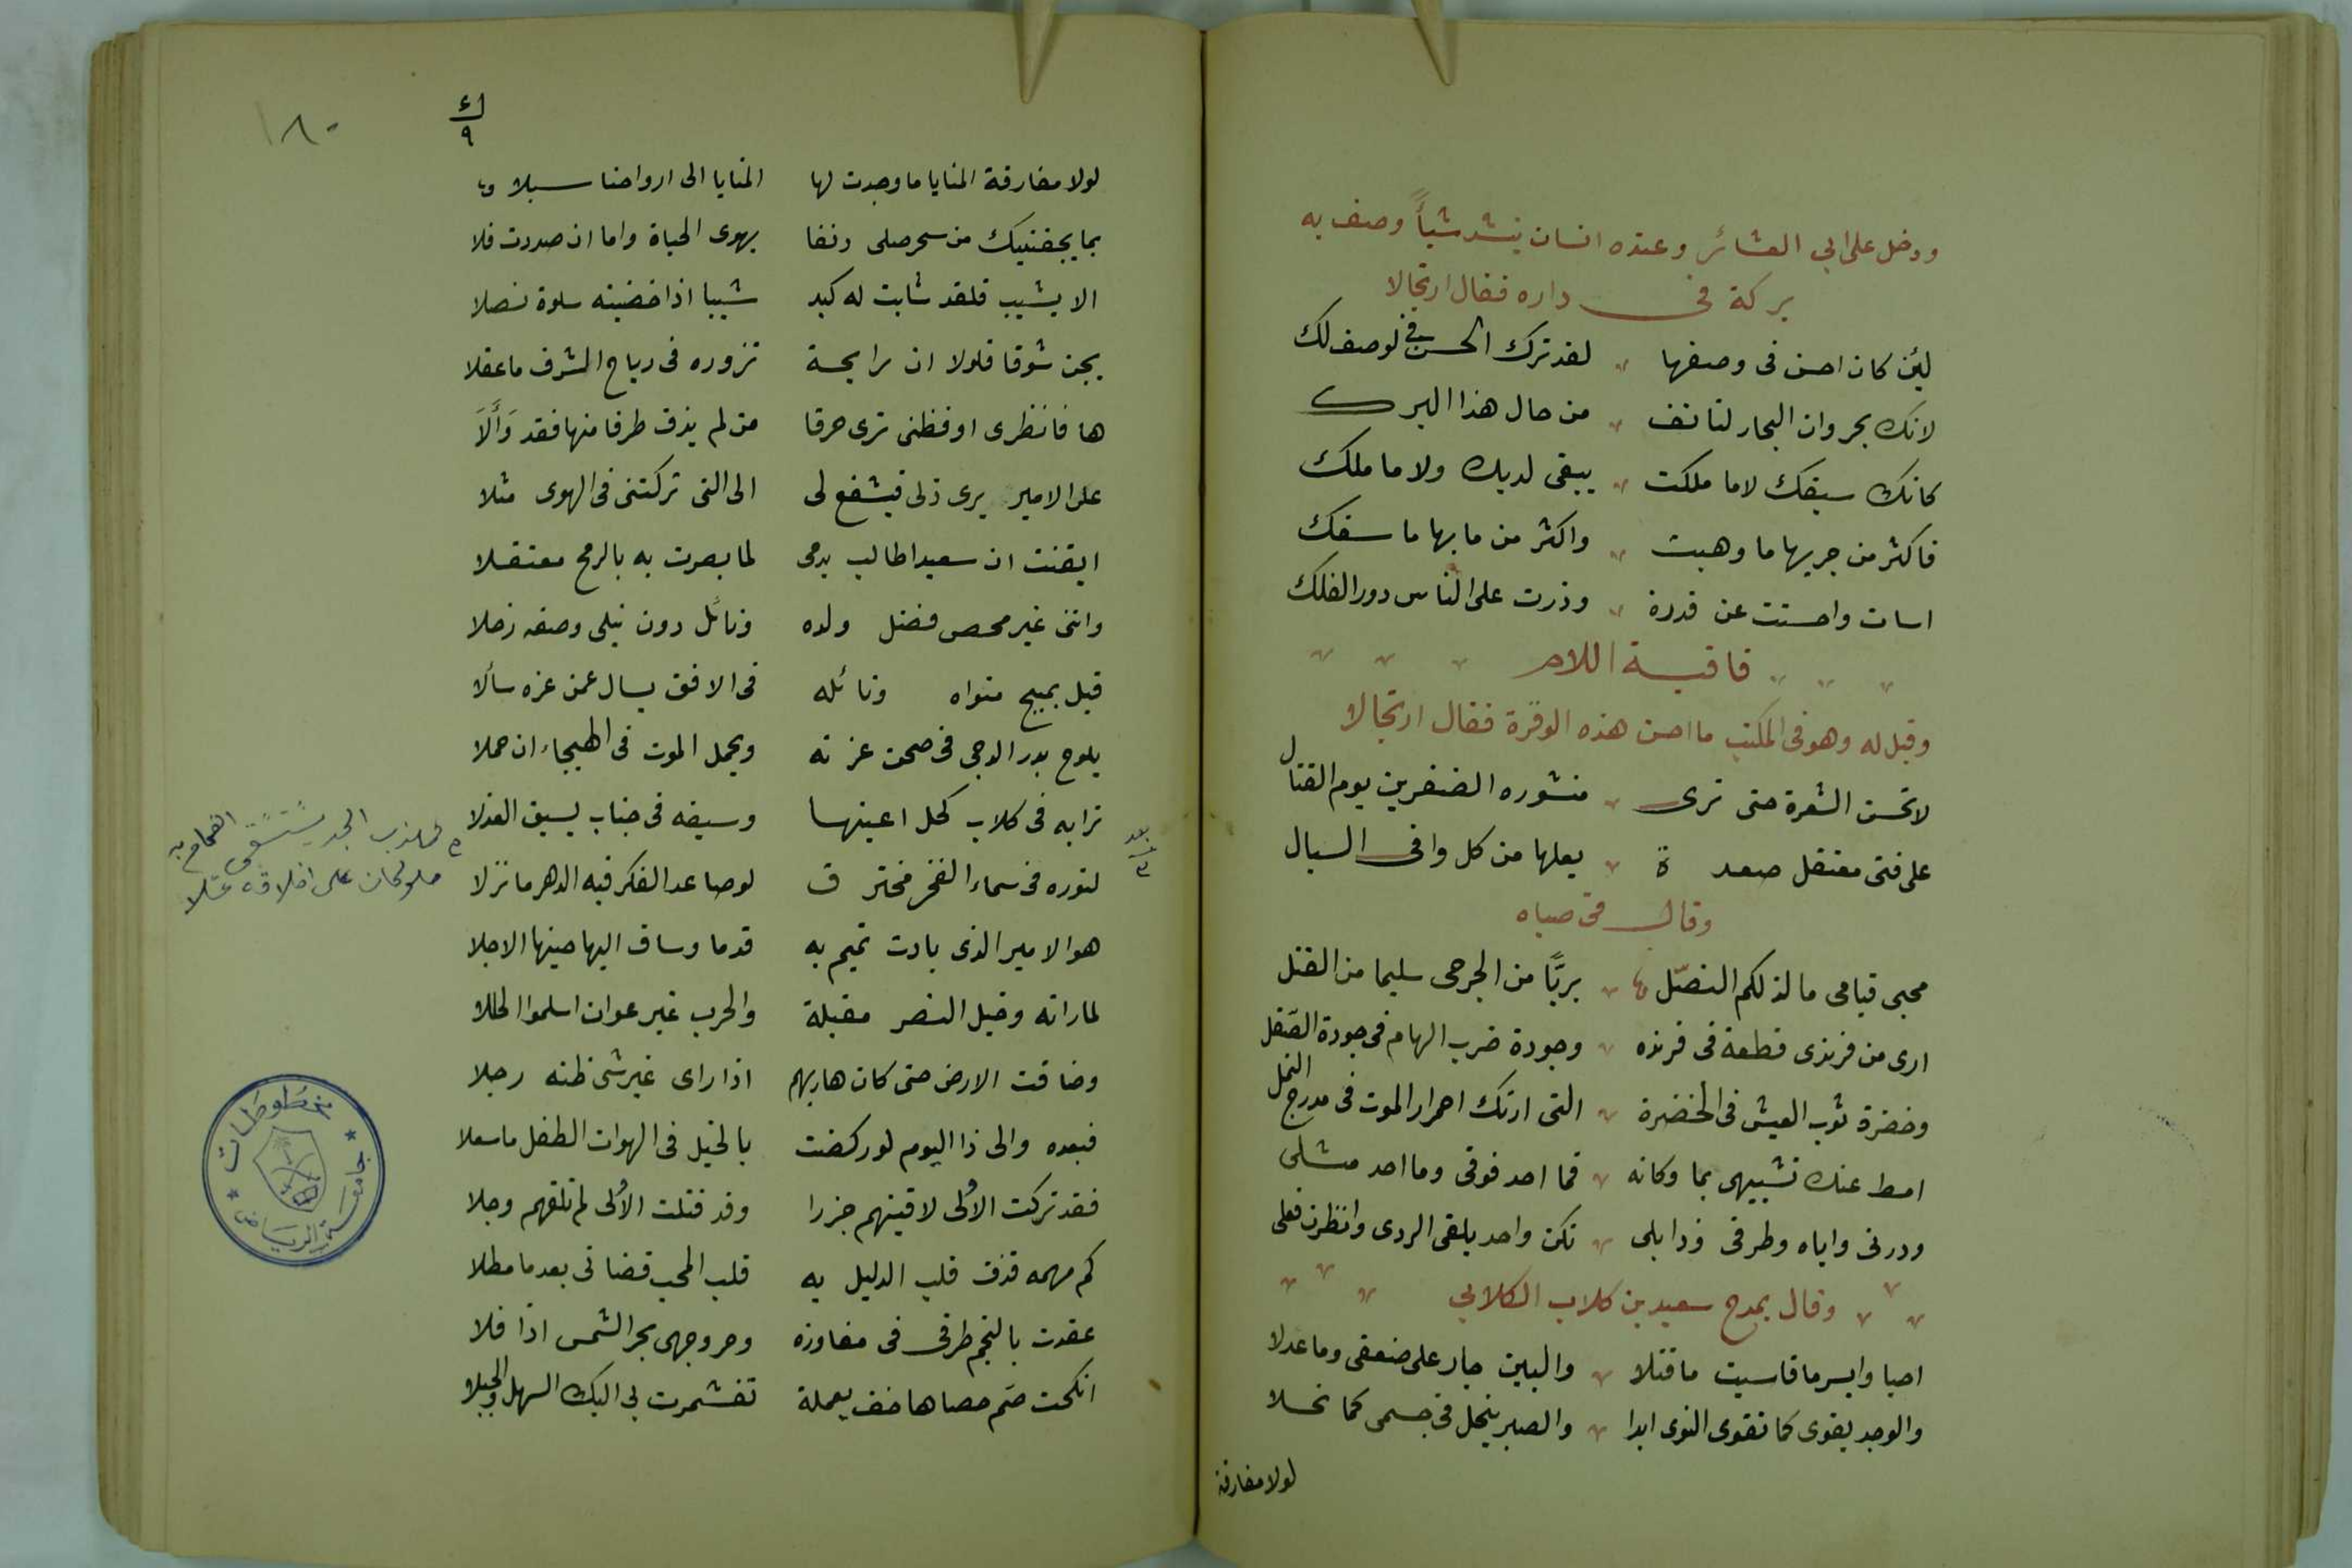 ودخل على ابي العشائر وعنده انسان ينشد شيأً وصف به
بركة في داره فقال ارتجالا
لئن كان احسن فى وصفها لقد ترك الحسن في لوصف لك
لانك بحر وان البحار لتانف من حال هذا البرك
كانك سيفك لا ما ملكت يبقى لديك ولا ما ملك
فاكثر من جريها ما وهبت واكثر من مابها ما سفك
اسات واحسنت عن قدرة وذرت على الناس دور الفلك
قافية اللام
وقيل له وهو فى المكتب ما احسن هذه الوفرة فقال ارتجالا
لا تحسن الشعرة حتى ترى منشوره الضفرين يوم القتال
على فتى معتقل صعدة يعلها من كل وافى السبال
وقال في صباه
محبى قيامى ما لذلكم النصّل بريًّا من الجرحى سليما من القتل
ارى من فرندى قطعة فى فرنده وجودة ضرب الهام فى جودة الصّقل
وخضرة ثوب العيش فى الخضرة التى ارتك احمرار الموت فى مدرج النمل
امط عنك تشبيهى بما وكانه فما احد فوقى وما احد مثلى
ودرنى واياه وطرفى وذابلى نكن واحد يلقى الردى وانظرن فعلى
وقال يمدح سعيد بن كلاب الكلابي
احيا وايسر ما قاسيت ما قتلا والبين جار على ضعفى وما عدلا
والوجد يقوى كما تقوى النوى ابدا والصبر ينحل فى جسمى كما نحلا
لولا مفارقة
٩
١٨٠
لولا مفارقة المنايا ما وجدت لها المنايا الى ارواحنا سبلا
بما بجفنيك من سحر صلى دنفا يهوى الحياة واما ان صددت فلا
الا يشيب فلقد شابت له كبد شيبا اذا خضبته سلوة نصلا
يجن شوقا فلولا ان رايحة تزوره فى رياح الشرف ما عقلا
ها فانظرى او فظنى ترى حرقا من لم يذق طرفا منها فقد وَأَلَا
على الامير يرى ذلى فيشفع لى الى التى تركتنى فى الهوى مثلا
ايقنت ان سعيدا طالب بدمى لما بصرت به بالرمح معتقلا
واننى غير محص فضل ولده ونائل دون نيلى وصفه زحلا
قيل بمبج مثواه ونائله فى الافق يسال عمن غزه سألا
يلوح بدر الدجى فى صحن غرته ويحمل الموت فى الهيجاء ان حملا
ترابه فى كلاب كحل اعينها وسيفه فى جناب يسبق العذلا
لنوره فى سماء الفخر مخترق لو صاعد الفكر فيه الدهر ما نزلا
هو الامير الذى بادت تميم به قدما وساق اليها حينها الاجلا
لما راته وخيل النصر مقبلة والحرب غير عوان اسلموا الحللا
وضاقت الارض حتى كان هاربهم اذا راى غير شى ظنه رجلا
فبعده والى ذا اليوم لو ركضت بالخيل فى الهوات الطفل ما سعلا
فقد تركت الأولى لاقيتهم جزرا وقد قتلت الأولى لم تلقهم وجلا
كم مهمه قذف قلب الدليل به قلب المحب قضانى بعد ما مطلا
عقدت بالنجم طرفى فى مفاوزه وحر وجهى بحر الشمس اذا فلا
انكحت صم حصاها خف يعملة تغشمرت بي اليك السهل والجبلا
بعد
مهذب الجد يستسقى الغمام به
حلو كان على اخلاقه عسلا
مخطوطات
جامعة الرياض